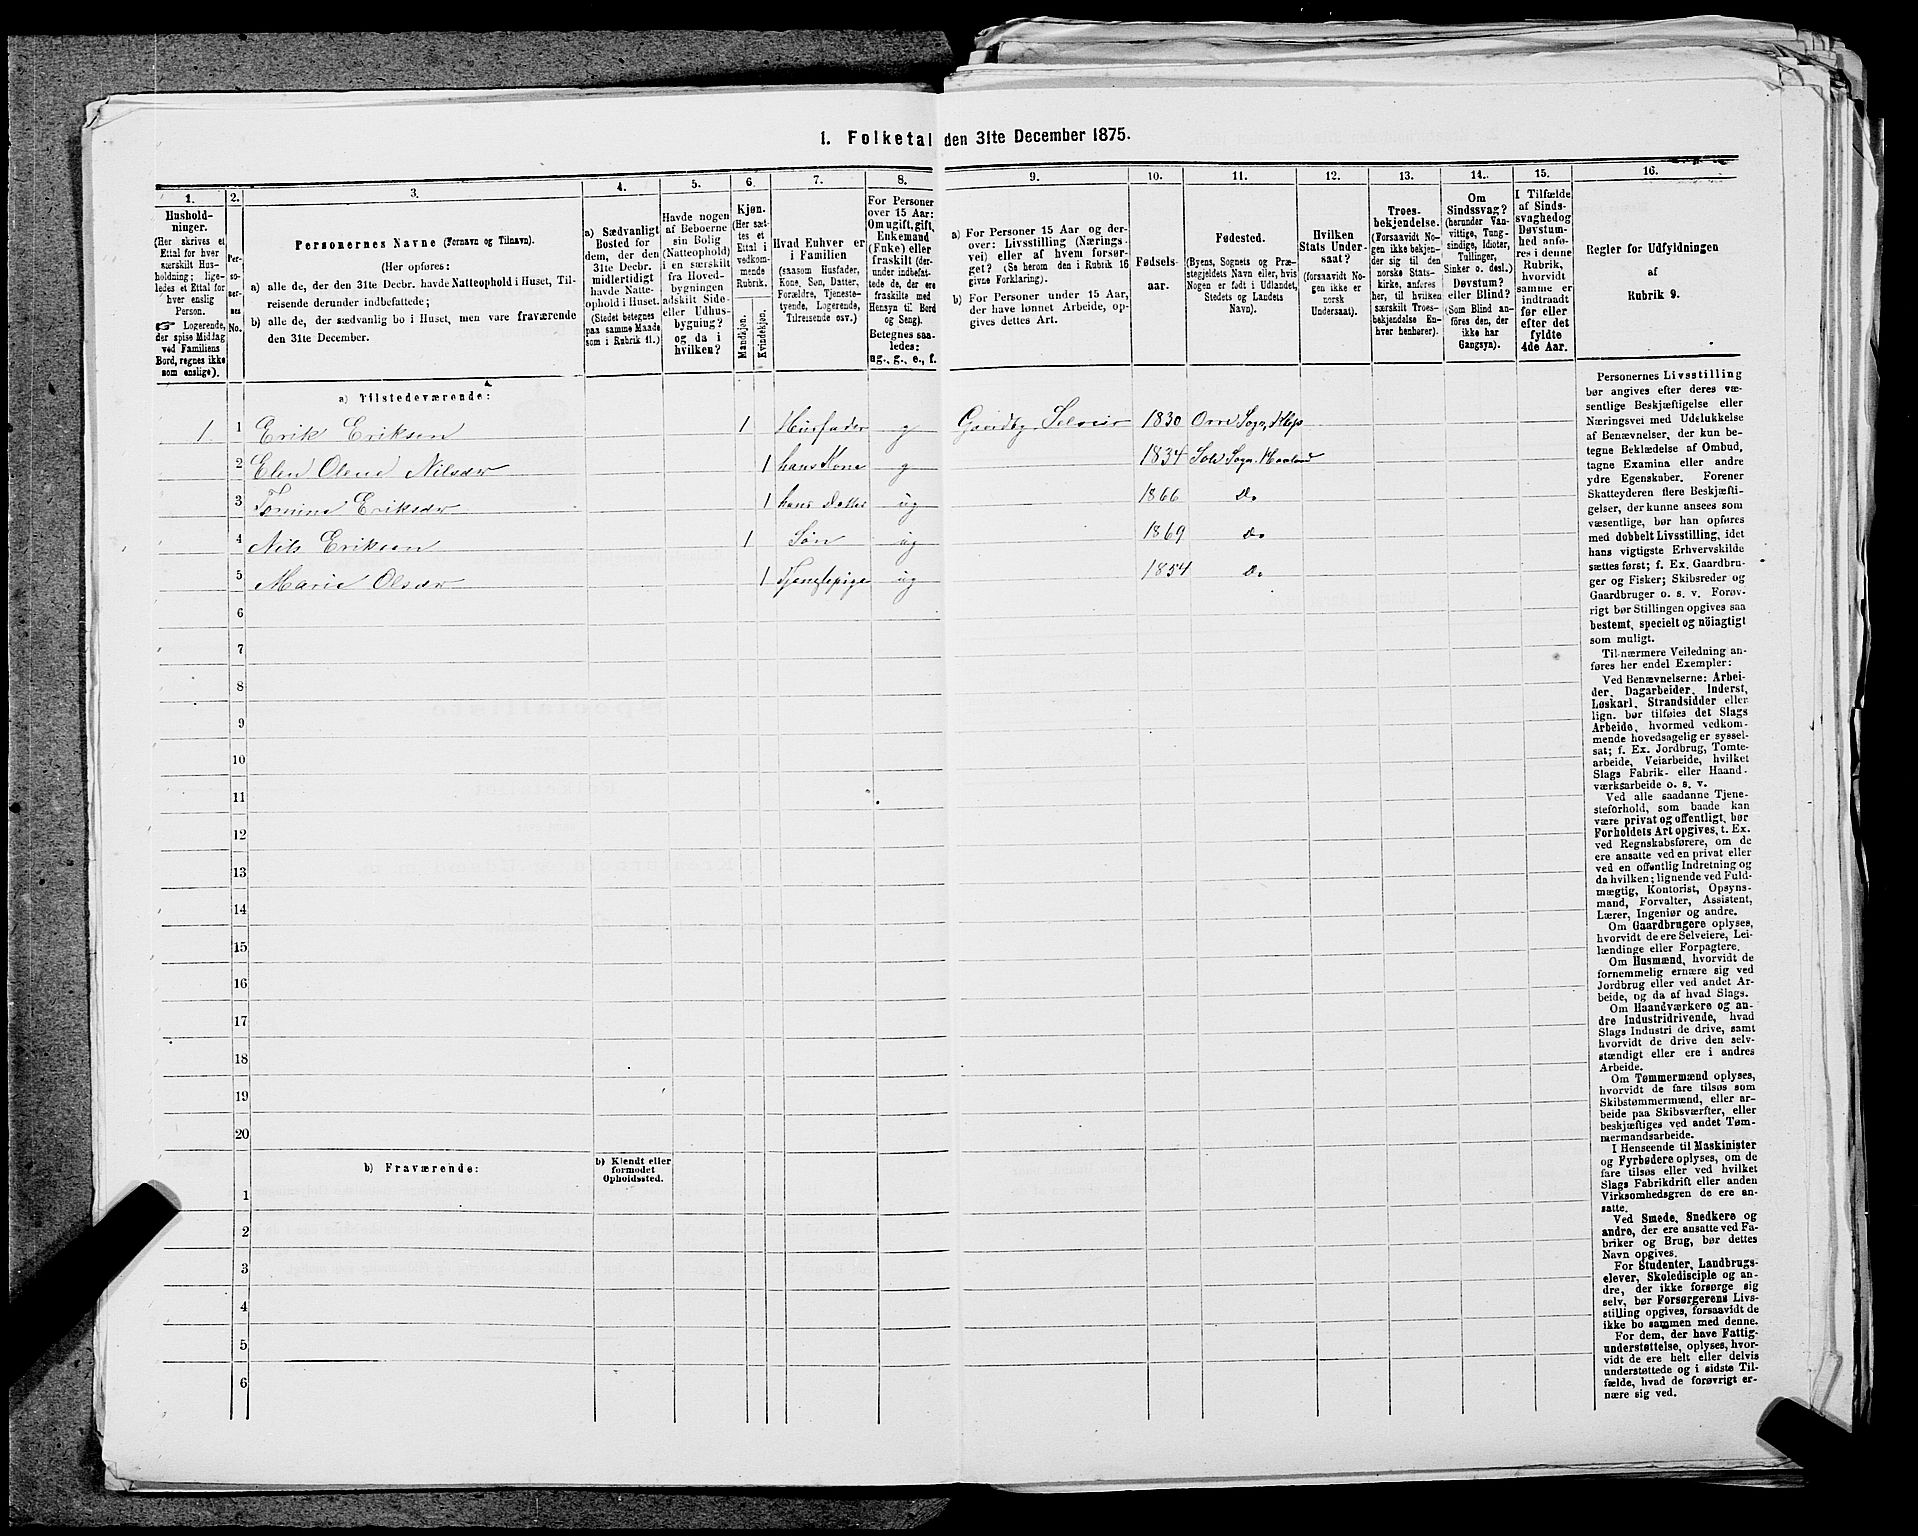 1. Folketal den 31te December 1875.
1.
Hushold-
ninger.
(Her skrives et
Ettal for hver
særskilt Hus-
holdning; lige-
ledes et Ettal for
hver enslig
Person.
☞ Logerende,
der spise Middag
ved Familiens
Bord, regnes ikke
som enslige).
2.
Per-
so-
ner-
nes
No.
3.
Personernes Navne (Fornavn og Tilnavn).
(Her opføres:
a) alle de, der den 31te Decbr. havde Natteophold i Huset, Til-
reisende derunder indbefattede;
b) alle de, der sædvanlig bo i Huset, men vare fraværende
den 31te December.
4.
a) Sædvanligt
Bosted for
dem, der den
31te Decbr.
midlertidigt
havde Natte-
ophold i Huset.
(Stedet betegnes
paa samme Maade
som i Rubrik 11.)
5.
Havde nogen
af Beboerne
sin Bolig
(Natteophold)
i en særskilt
fra Hoved-
bygningen
adskilt Side-
eller Udhus-
bygning?
og da i
hvilken?
6.
Kjøn.
(Her sæt-
tes et
Ettal i
vedkom-
mende
Rubrik.
Mandkjøn.
Kvindekjøn.
7.
Hvad Enhver er
i Familien
(saasom Husfader,
Kone, Søn, Datter,
Forældre, Tjeneste-
tyende, Logerende,
Tilreisende osv.)
8.
For Personer
over 15 Aar:
Om ugift, gift,
Enkemand
(Enke) eller
fraskilt (der-
under indbefat-
tede de, der ere
fraskilte med
Hensyn til Bord
og Seng).
Betegnes saa-
ledes:
ug., g., e., f.
9.
a) For Personer 15 Aar og der-
over: Livsstilling (Nærings-
vei) eller af hvem forsør-
get? (Se herom den i Rubrik 16
givne Forklaring).
b) For Personer under 15 Aar,
der have lønnet Arbeide, op-
gives dettes Art.
10.
Fødsels-
aar.
11.
Fødested.
(Byens, Sognets og Præ-
stegjeldets Navn eller, hvis
Nogen er født i Udlandet,
Stedets og Landets
Navn).
12.
Hvilken
Stats Under-
saat?
(forsaavidt No-
gen ikke er
norsk
Undersaat).
13.
Troes-
bekjendelse.
(Forsaavidt No-
gen ikke bekjen-
der sig til den
norske Stats-
kirke, anføres
her, til hvilken
særskilt Troes-
bekjendelse En-
hver henhører).
14.
Om
Sindssvag?
(herunder Van-
vittige, Tung-
sindige, Idioter,
Tullinger,
Sinker o. desl.)
Døvstum?
eller Blind?
(Som Blind an-
føres den, der
ikke har
Gangsyn).
15.
I Tilfælde
af Sinds-
svaghed og
Døvstum-
hed anfø-
res i denne
Rubrik,
hvorvidt
samme er
indtraadt
før eller
efter det
fyldte
4de Aar.
16.
Regler for Udfyldningen
af
Rubrik 9.
a) Tilstedeværende:
1 1 Erik Eriksen 1 Husfader g Gaardbr. Selveier 1830 Orre Sogn, Klep
2 Elen Olene Nilsdr 1 hans Kone g 1834 Sole Sogn Haaland
3 Tomine Eriksdr 1 hans Datter ug 1866 Do
4 Nils Eriksen 1 Søn ug 1869 Do
5 Marie Olsdr 1 Tjenstepige ug 1854 Do
6
7
8
9
10
11
12
13
14
15
16
17
18
19
20
b) Fraværende:
b) Kjendt eller
formodet
Opholdssted.
1
2
3
4
5
6
Personernes Livsstilling
bør angives efter deres væ-
sentlige Beskjæftigelse eller
Næringsvei med Udelukkelse
af Benævnelser, der kun be-
tegne Beklædelse af Ombud,
tagne Examina eller andre
ydre Egenskaber. Forener
Skatteyderen flere Beskjæfti-
gelser, der kunne ansees som
væsentlige, bør han opføres
med dobbelt Livsstilling, idet
hans vigtigste Erhvervskilde
sættes først; f. Ex. Gaardbru-
ger og Fisker; Skibsreder og
Gaardbruger o. s. v. Forøv-
rigt bør Stillingen opgives saa
bestemt, specielt og nøiagtigt
som muligt.
Til nærmere Veiledning an-
føres her endel Exempler:
Ved Benævnelserne: Arbei-
der, Dagarbeider, Inderst,
Løskarl, Strandsidder eller
lign. bør tilføies det Slags
Arbeide, hvormed vedkom-
mende hovedsagelig er syssel-
sat; f. Ex. Jordbrug, Tomte-
arbeide, Veiarbeide, hvilket
Slags Fabrik- eller Haand-
værksarbeide o. s. v.
Ved alle saadanne Tjene-
steforhold, som baade kan
være privat og offentligt, bør
Forholdets Art opgives, t. Ex.
ved Regnskabsførere, om de
ere ansatte ved en privat eller
ved en offentlig Indretning og
da hvilken; lignende ved Fuld-
mægtig, Kontorist, Opsyns-
mand, Forvalter, Assistent,
Lærer, Ingeniør og andre.
Om Gaardbrugere oplyses,
hvorvidt de ere Selveiere, Lei-
lændinge eller Forpagtere.
Om Husmænd, hvorvidt de
fornemmelig ernære sig ved
Jordbrug eller ved andet Ar-
beide, og da af hvad Slags.
Om Haandværkere og an-
dre Industridrivende, hvad
Slags Industri de drive, samt
hvorvidt de drive den selv-
stændigt eller ere i andres
Arbeide.
Om Tømmermænd oplyses,
hvorvidt de fare tilsøs som
Skibstømmermænd, eller ar-
beide paa Skibsværfter, eller
beskjæftiges ved andet Tøm-
mermandsarbeide.
I Henseende til Maskinister
og Fyrbødere oplyses, om de
fare tilsøs eller ved hvilket
Slags Fabrikdrift eller anden
Virksomhedsgren de ere an-
satte.
Ved Smede, Snedkere og
andre, der ere ansatte ved Fa-
briker og Brug, bør dettes
Navn opgives.
For Studenter, Landbrugs-
elever, Skoledisciple og an-
dre, der ikke forsørge sig
selv, bør Forsørgerens Livs-
stilling opgives, forsaavidt de
ikke bo sammen med denne.
For dem, der have Fattig-
understøttelse, oplyses, hvor-
vidt de ere helt eller delvis
understøttede og i sidste Til-
fælde, hvad de forøvrigt er-
nære sig ved.